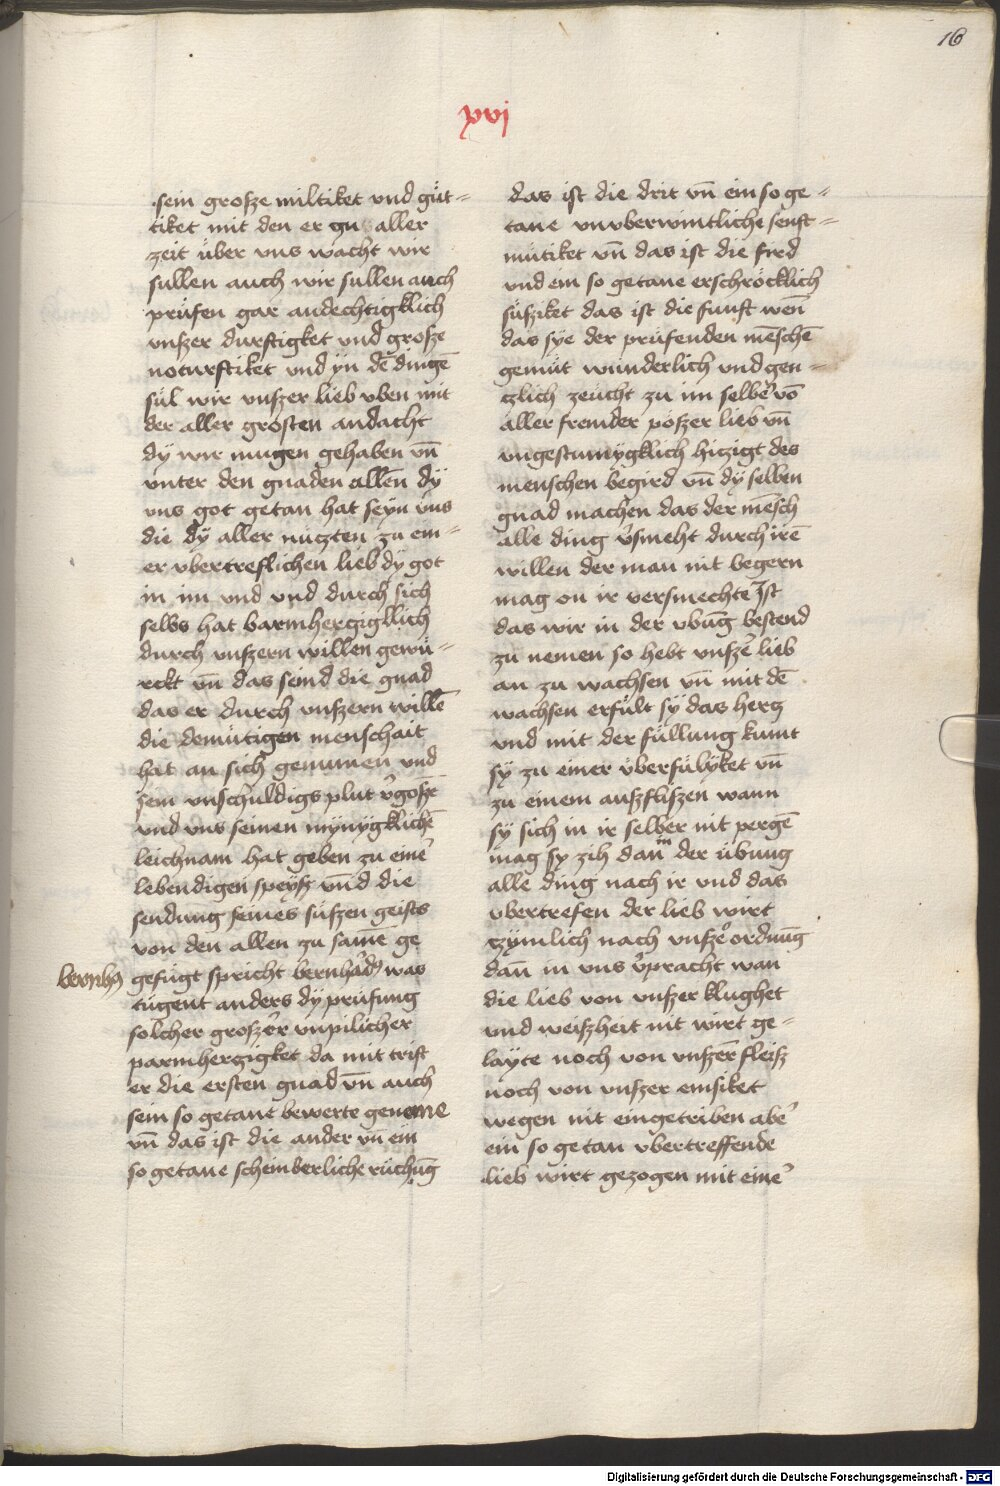 16
xvi
sein grosze miltiket vnd güt-
tiket mit den er zu aller
zeit über vns wacht wir
sullen auch wir sullen auch
prüfen gar andechtigklich
vnszer durftigket vnd grosze
noturftiket vnd yn dē dingē
sül wir vnszer lieb vben mit
der aller grosten andacht
dÿ wir mugen gehaben vn̄
vnter den gnaden allen dÿ
vns got getan hat seyn vns
die dÿ aller nüczten zu ein-
er vbertreflichen lieb dÿ got
in im vnd vnd durch sich
selbs hat barmherczigklich
durch vnszern willen gewü-
rckt vn̄ das seind die gnad
das er durch vnszern willē
die demütigen menschait
hat an sich genumen vnd
sein vnschuldigs plut v̉goszē
vnd vns seinen mÿnÿgklichē
leichnam hat geben zu eine͛
lebendigen speÿsz vnd die
sendung seines süszen geists
von den allen zu samē ge
gefügt spricht bernhard9 was
bernh9
tügent anders dÿ prüfung
solcher groszer vnpilicher
parmherczigket da mit trift
er die ersten gnad vn̄ auch
sein so getane bewerte geneme
vn̄ das ist die ander vn̄ ein
so getane scheinberliche rüchūg
das ist die drit vn̄ ein so ge-
tane vnvberwintliche senft-
mütiket vn̄ das ist die fird
vnd ein so getane erschröcklich
süsziket das ist die funft wen̄
das sÿe der prüfenden mēschē
gemüt wunderlich vnd gen-
czlich zeucht zu im selber vō
aller fremder poszer lieb vn̄
vngestumÿgklich hiczigt des
menschen begird vn̄ dÿ selben
gnad machen das der mēsch
alle ding v̉smeht durch irē
willen der man nit begern
mag on ir versmechte Ist
das wir in der vbūg bestend
zu nemen so hebt vnsze͛ lieb
an zu wachsen vn̄ mit dē
wachsen erfült sÿ das hercz
vnd mit der füllung kumt
sÿ zu einer überfülÿket vn̄
zu einem auszfliszen wann
sÿ sich in ir selber nit pergē
mag sy zih dan̄ in der übung
alle ding nach ir vnd das
vbertrefen der lieb wirt
czÿmlich nach vnsze͛ ordnūg
dan̄ in vns v̉pracht wan
die lieb von vnszer klughet
vnd weiszheit nit wirt ge-
layte noch von vnszer fleisz
noch von vnszer emsiket
wegen nit eingetriben abe͛
ein so getan vbertreffende
lieb wirt gezogen mit eine͛
Digitalisierung gefördert durch die Deutsche Forschungsgemeinschaft - DFG